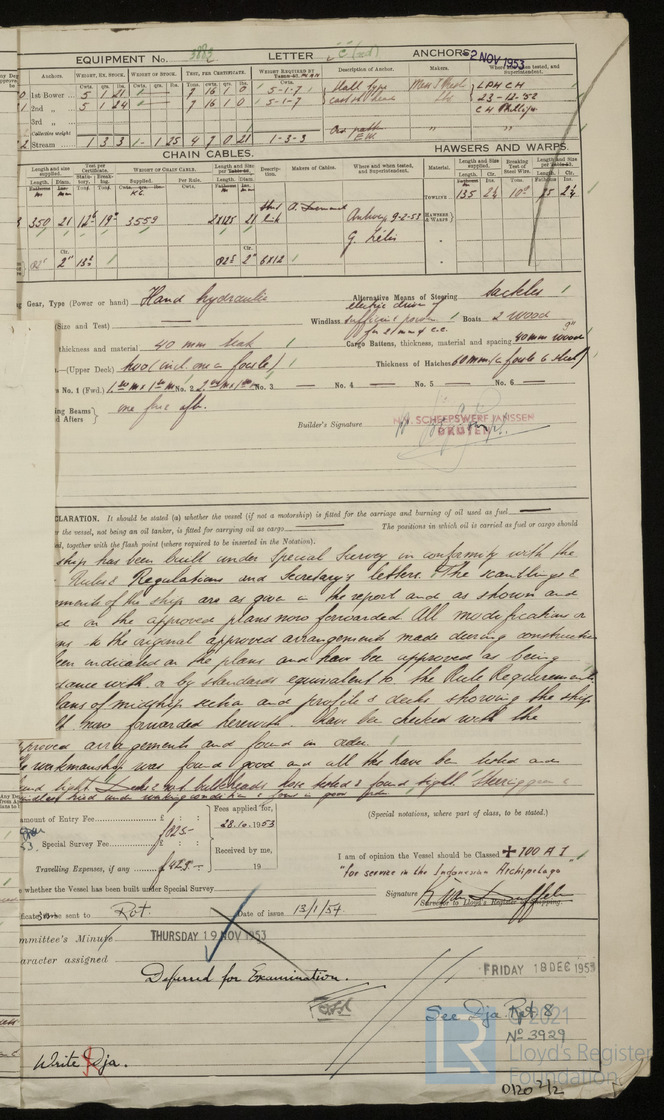 EQUIPMENT No. LETTER "C" ANCHORS
2 NOV 1953
Anchors. WEIGHT, EX. STOCK. WEIGHT OF STOCK. TEST, PER CERTIFICATE. WEIGHT REQUIRED BY Description of Anchor. Makers. Where and when tested, and Superintendent.
1st Bower 5 1 21 7 16 1 0 5-1-7 Hall type L P H C H
2nd " 5 1 24 7 16 1 0 5-1-7 cast steel head 23-12-52
3rd " C H Phillips
Collective weight
Stream 1 3 3 1-1 25 4 7 0 21 1-3-3 " "
CHAIN CABLES. HAWSERS AND WARPS.
Length and size supplied. Test per Certificate. WEIGHT OF CHAIN CABLE. Length and size per Description. Makers of Cables. Where and when tested, and Superintendent. Material. Length and size supplied. Breaking Test of Steel Wire. Length and size per
Supplied. Per Rule.
TOWLINE 135 2¼ 75 2¼
350 21 3559 2x125 21 link Antwerp 9-2-53 HAWSERS & WARPS
G. Lélis
82⁵ 2" 13² 82⁵ 2" 6x12
Gear, Type (Power or hand) Hand hydraulic Alternative Means of Steering tackles
Size and Test) Windlass electric drive of sufficient power for 21 mm ø c.c. Boats 2 wood
thickness and material 40 mm teak Cargo Battens, thickness, material and spacing 40 mm wood 9"
(Upper Deck) two (incl one in focsle) Thickness of Hatches 60 mm (in focsle is steel)
s No. 1 (Fwd.) No. 2 No. 3 — No. 4 — No. 5 — No. 6 —
ng Beams
d Afters one fore aft.
Builder's Signature N.V. SCHEEPSWERF JANSSEN
DRUTEN
CLARATION. It should be stated (a) whether the vessel (if not a motorship) is fitted for the carriage and burning of oil used as fuel —
r the vessel, not being an oil tanker, is fitted for carrying oil as cargo — The positions in which oil is carried as fuel or cargo should
ed, together with the flash point (where required to be inserted in the Notation).
ship has been built under Special Survey in conformity with the
Rules & Regulations and Secretary's letters. The scantlings &
ments of the ship are as given in the report and as shown and
d on the approved plans now forwarded. All modifications or
ns to the original approved arrangements made during construction
een indicated on the plans and have been approved as being
dance with or by standards equivalent to the Rule Requirements
lans of midship section and profile & decks showing the ship
lt now forwarded herewith have been checked with the
proved arrangements and found in order.
e workmanship was found good and all tks have been tested and
und tight. Decks & wt bulkheads hose tested & found tight. Steering gear &
windlass tried under working condition & found in good order
amount of Entry Fee £ : : Fees applied for,
Special Survey Fee £825- 28.10.1953
Received by me,
Travelling Expenses, if any £425.- 19
(Special notations, where part of class, to be stated.)
I am of opinion the Vessel should be Classed ✠ 100 A 1
"for service in the Indonesian Archipelago
e whether the Vessel has been built under Special Survey
Signature
Surveyor to Lloyd's Register of Shipping.
ficate to be sent to Rot. Date of issue 13/1/54.
mmittee's Minute THURSDAY 19 NOV 1953
aracter assigned
Deferred for Examination. FRIDAY 18 DEC 1953
See Dja Rpt 8
No 3929
© 2021
Lloyd's Register
Foundation
Write Dja.
0120 2/2